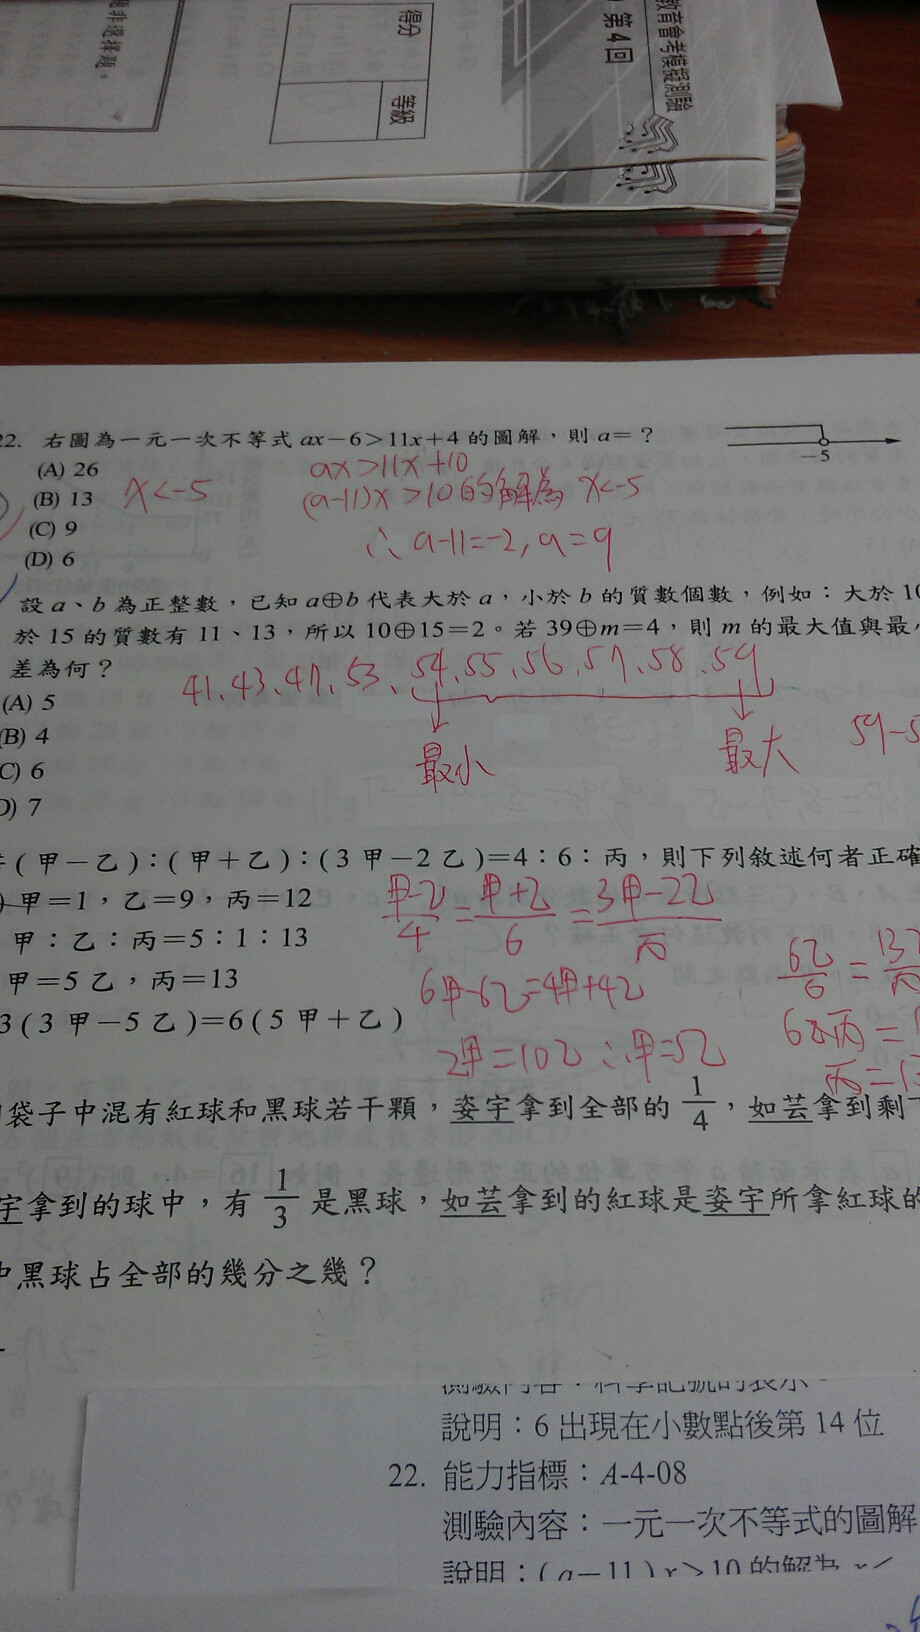 題非選擇題。
得分
等級
第4回
教育會考模擬測驗
22. 右圖為一元一次不等式 ax－6＞11x＋4 的圖解，則 a＝？
－5
(A) 26
(B) 13
(C) 9
(D) 6
x<-5
ax>11x+10
(a-11)x>10的解為 x<-5
∴ a-11=-2, a=9
設 a、b 為正整數，已知 a⊕b 代表大於 a，小於 b 的質數個數，例如：大於 10
於 15 的質數有 11、13，所以 10⊕15＝2。若 39⊕m＝4，則 m 的最大值與最
差為何？
(A) 5
(B) 4
C) 6
D) 7
41、43、47、53、54、55、56、57、58、59
最小
最大
59-5
(甲－乙)：(甲＋乙)：(3 甲－2 乙)＝4：6：丙，則下列敘述何者正確
甲＝1，乙＝9，丙＝12
甲：乙：丙＝5：1：13
甲＝5 乙，丙＝13
3(3 甲－5 乙)＝6(5 甲＋乙)
甲-乙/4 = 甲+乙/6 = 3甲-2乙/丙
6甲-6乙=4甲+4乙
2甲=10乙 ∴甲=5乙
6乙/6 = 13乙/丙
丙=13
袋子中混有紅球和黑球若干顆，姿宇拿到全部的 1/4，如芸拿到剩
宇拿到的球中，有 1/3 是黑球，如芸拿到的紅球是姿宇所拿紅球的
中黑球占全部的幾分之幾？
測驗內容：科學記號的表示
說明：6 出現在小數點後第 14 位
22. 能力指標：A-4-08
測驗內容：一元一次不等式的圖解
說明：(a－11)x＞10 的解為 x＜